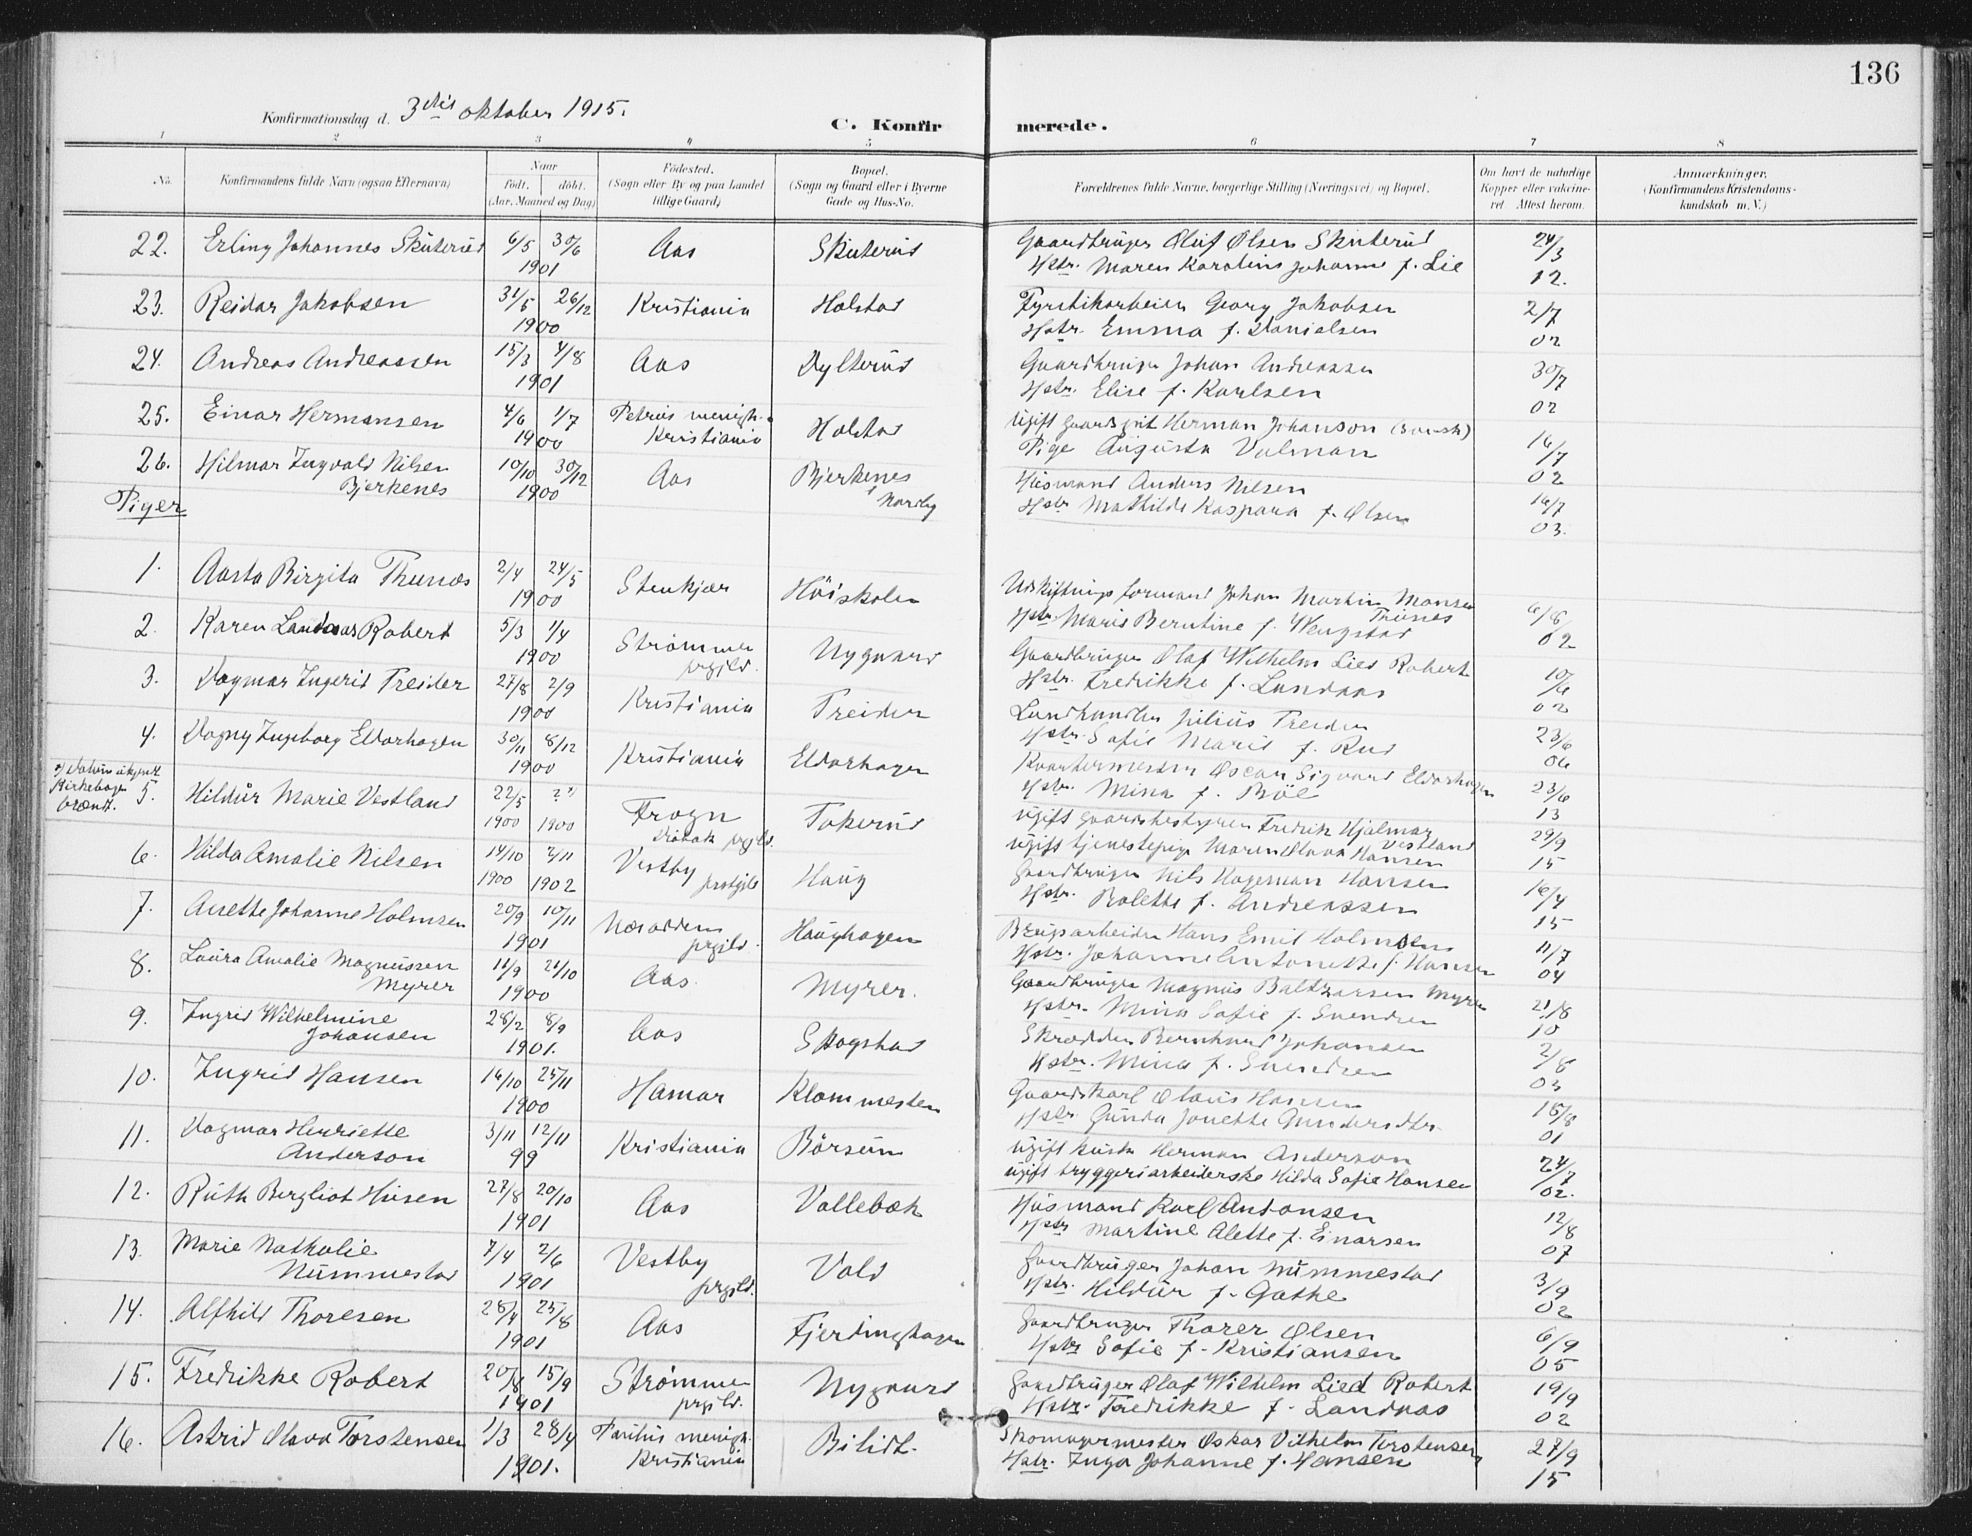 136
Konfirmationsdag d. 3die oktober 1915.
C. Konfirmerede.
1 2 3 4 5 6 7 8
No. Konfirmandens fulde Navn (ogsaa Efternavn) Naar født. døbt. (Aar, Maaned og Dag) Födested. (Sogn eller By og paa Landet tillige Gaard) Bopæl. (Sogn og Gaard eller i Byerne Gade og Hus-No. Forældrenes fulde Navne, borgerlige Stilling (Næringsvei) og Bopæl. Om havt de naturlige Kopper eller vakcineret Attest herom. Anmærkninger. (Konfirmandens Kristendomskundskab m. V.)
22. Erling Johannes Skuterud 6/5 30/6 1901 Aas Skuterud Gaardbruger Oluf Olsen Skuterud 24/3
Hstr. Maren Karoline Johanne f. Lie 12.
23. Reidar Jakobsen 31/5 26/12 1900 Kristiania Holstad Fyrstikarbeider Georg Jakobsen 2/7
Hstr. Emma f. Danielsen 02
24. Andreas Andreassen 15/3 4/8 1901 Aas Dylterud Gaardbruger Johan Andreassen 30/7
Hstr. Elise f. Karlsen 02
25. Einar Hermansen 4/6 1/7 1900 Petrus menigh. Kristiania Holstad Ugift gaardsgut Herman Johanson (svensk) 16/7
Pige Augusta Valman 02
26. Hilmar Ingvald Nilsen Bjerkenes 10/10 30/12 1900 Aas Bjerkenes Nordby Husmand Anders Nilsen 16/7
Hstr. Mathilde Kaspara f. Olsen 03.
Piger
1. Aasta Birgita Thunæs 2/4 24/5 1900 Stenkjær Höiskolen Udskiftningsformand Johan Martin Monsen Trønes 6/8
Hstr. Marie Berntine f. Wengstad 02
2. Karen Landaas Robert 5/3 1/4 1900 Strømmen prgjld. Nygaard Gaardbruger Olaf Wilhelm Lied Robert 10/6
Hstr. Fredrikke f. Landaas 02
3. Dagmar Ingerid Treider 27/8 2/9 1900 Kristiania Treider Landhandler Julius Treider 23/6
Hstr. Sofie Marie f. Rud 06
4. Dagny Ingeborg Eldorhagen 30/11 8/12 1900 Kristiania Eldorhagen Kvartermester Oscar Sigvard Eldorhagen 23/6
Hstr. Mina f. Böe 13
*) Datum ukjendt Kirkebogen brændt.
5. Hildur Marie Vestland 22/5 1900 ? *) 1900 Frogn Drøbak prgjld. Tokerud Ugift gaardsbestyrer Fredrik Hjalmar Vestland 29/9
ugift tjenestepige Maren Olava Hansen 15
6. Hilda Amalie Nilsen 14/10 1900 2/11 1902 Vestby prstgjld Haug Gaardbruger Nils Hageman Hansen 16/4
Hstr. Bolette f. Andreassen 15
7. Anette Johanne Holmsen 20/9 10/11 1901 Næsoddens prgjld. Haughagen Brugsarbeider Hans Emil Holmsen 11/7
Hstr. Johanne Antonette f. Hansen 04
8. Laura Amalie Magnussen Myrer 11/9 21/10 1900 Aas. Myrer. Gaardbruger Magnus Baltzarsen Myrer 21/8
Hstr. Mina Sofie f. Svendsen 10
9. Ingrid Wilhelmine Johansen 28/2 8/9 1901. Aas Skogstad Skrædder Bernhard Johansen 2/8
Hstr. Mina f. Svendsen 03
10. Ingrid Hansen 16/10 25/11 1900 Hamar Klommesten Gaardskarl Olaus Hansen 15/8
Hstr. Gunda Jonette Gundersdtr. 01
11. Dagmar Henriette Anderson 3/11 12/11 99 Kristiania Börsum ugift kusk Herman Anderson 24/7
ugift bryggeriarbeiderske Hilda Sofie Hansen 02.
12. Ruth Bergliot Husen 27/8 20/10 1901 Aas Vollebæk Husmand Karl Antonsen 12/8
Hstr Martine Alette f. Einarsen 07
13. Marie Nathalie Nummestad 7/4 2/6 1901 Vestby prgjld. Vold Gaardbruger Johan Nummestad 3/9
Hstr. Hildur f. Gathe 02
14. Alfhild Thoresen 28/4 25/8 1901 Aas Fjerdinghagen Gaardbruger Thorer Olsen 6/9
Hstr Sofie f. Kristiansen 05
15. Fredrikke Robert 20/8 15/9 1901 Strømmen prgjld. Nygaard Gaardbruger Olaf Wilhelm Lied Robert 19/9
Hstr. Fredrikke f. Landaas 02
16. Astrid Olava Torstensen 1/3 28/4 1901. Paulus menigh. Kristiania Bilidt. Skomagermester Oskar Vilhelm Torstensen 27/9
Hstr. Inga Johanne f. Hansen 15